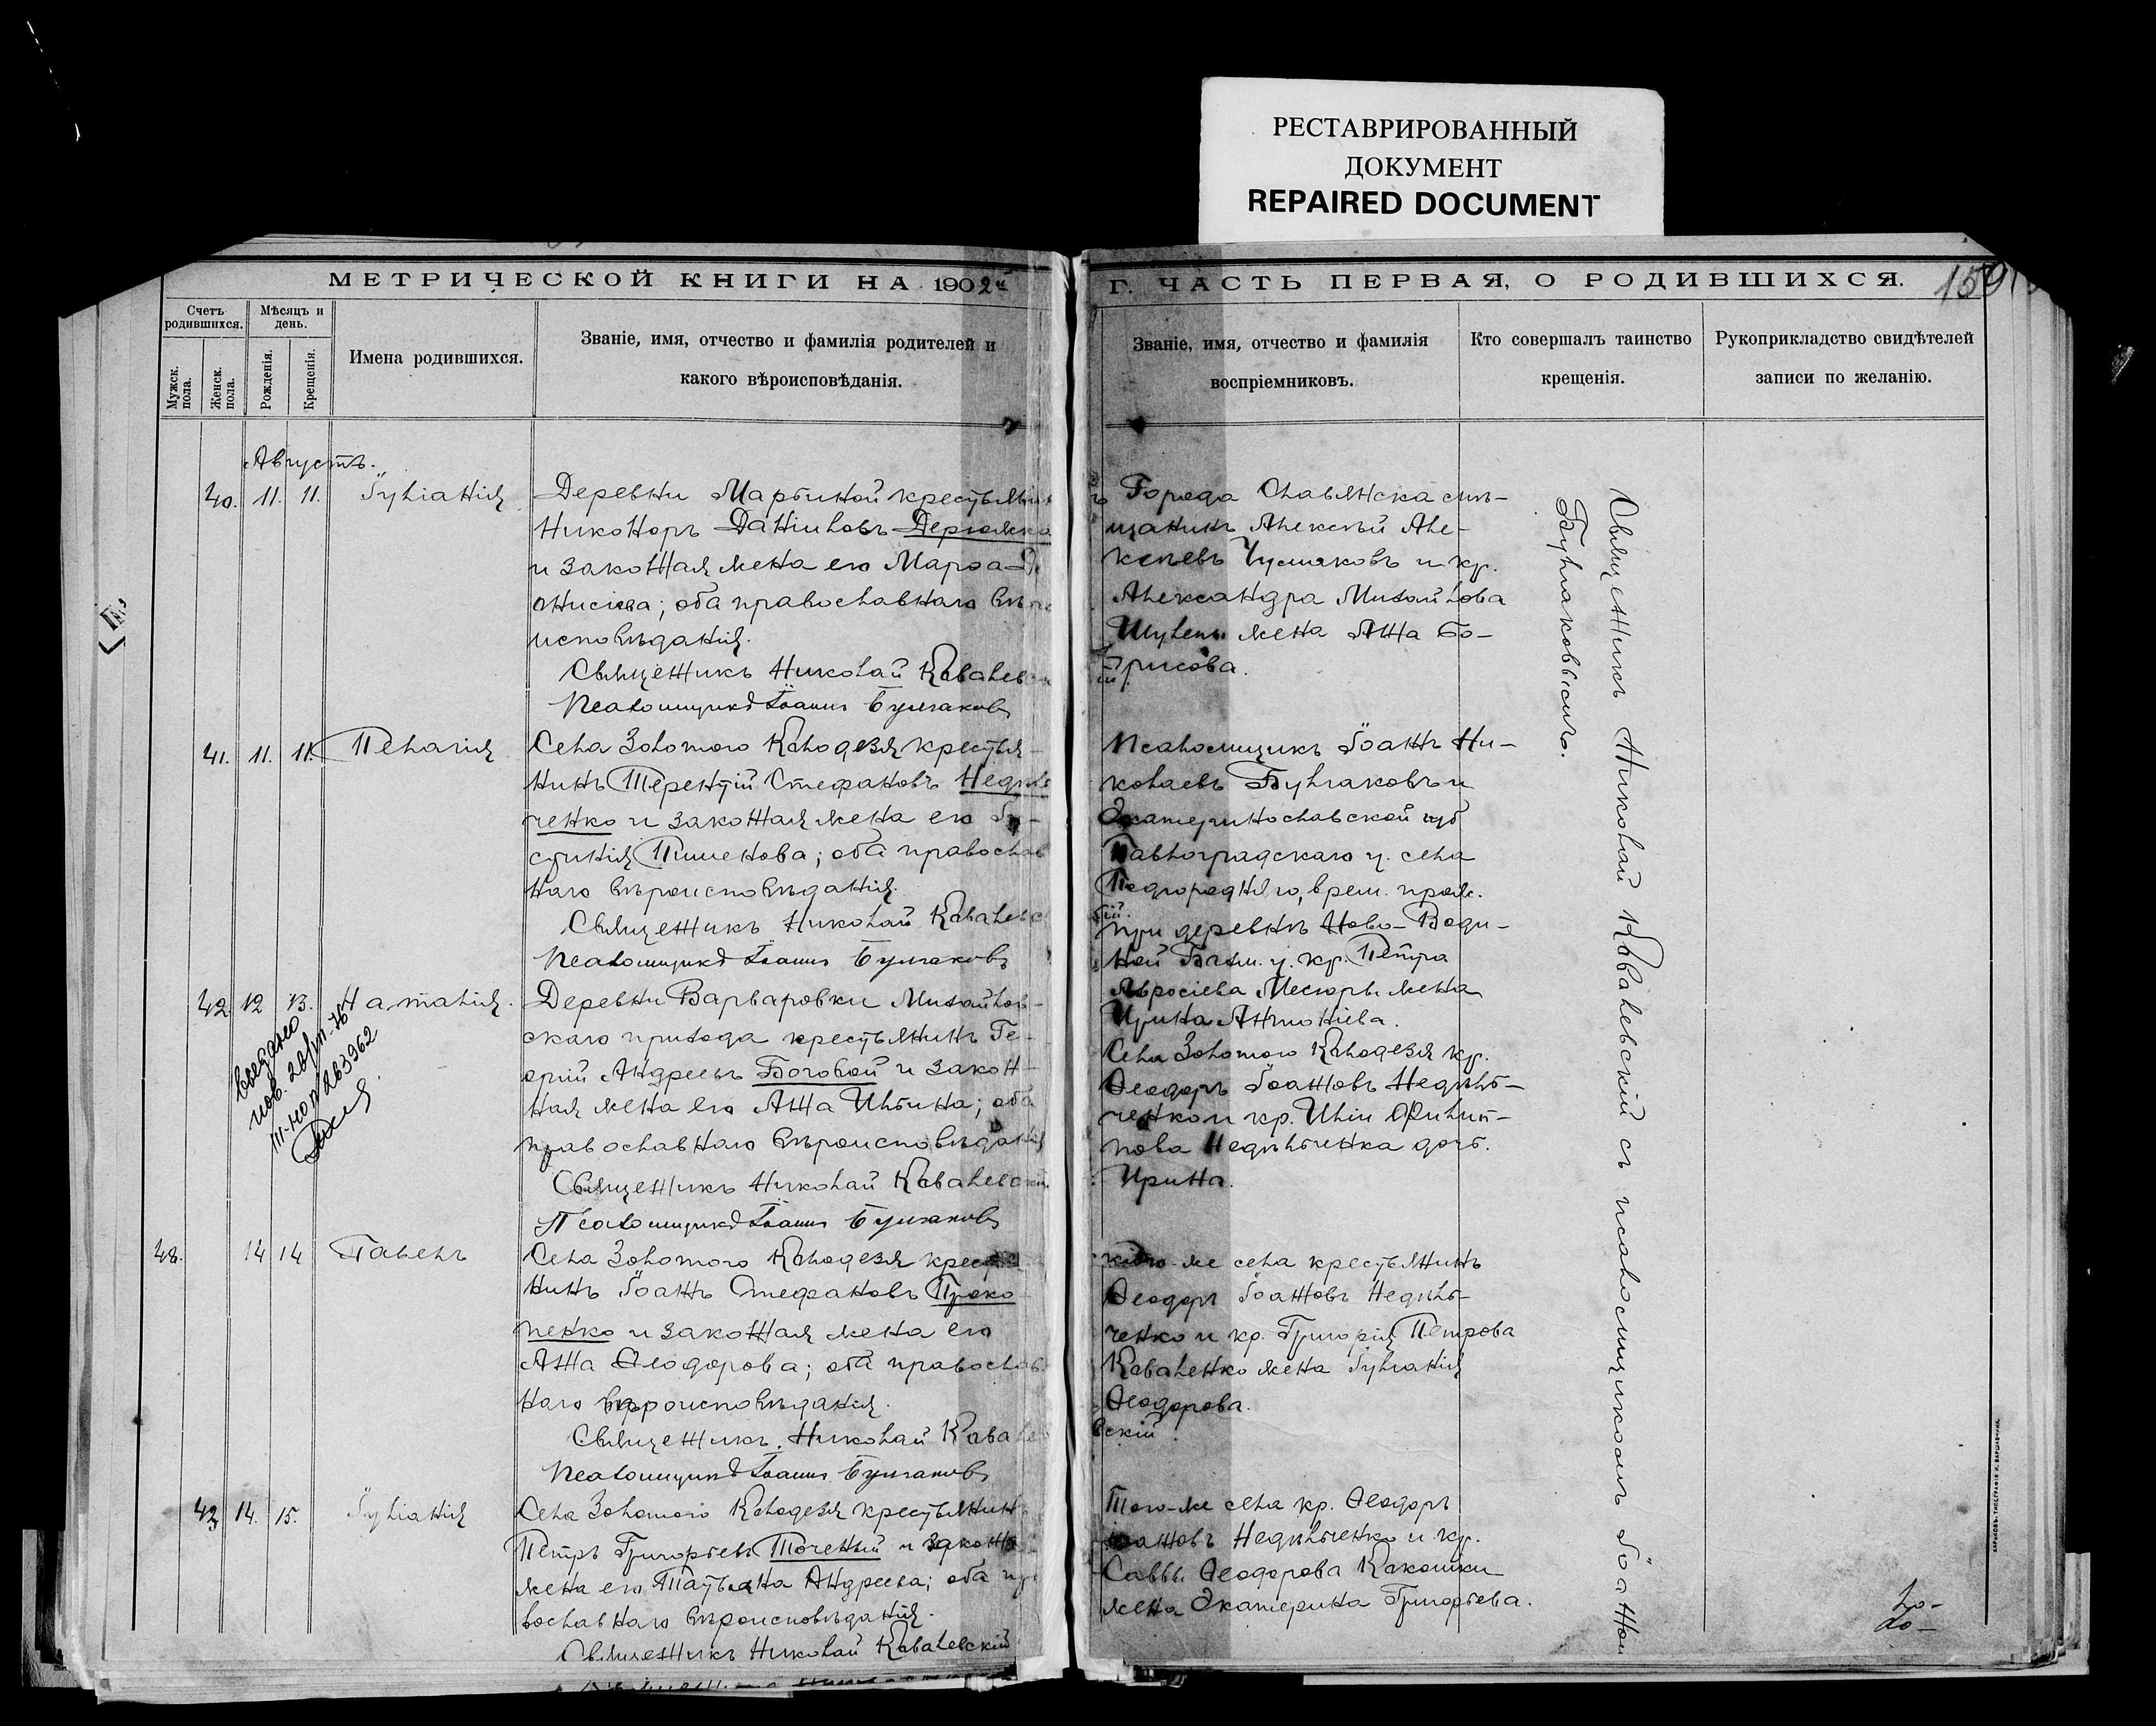 РЕСТАВРИРОВАННЫЙ
ДОКУМЕНТ
REPAIRED DOCUMENT
МЕТРИЧЕСКОЙ КНИГИ НА 1902й
Г. ЧАСТЬ ПЕРВАЯ, О РОДИВШИХСЯ.
159
Счетъ родившихся.
Мужск. пола.
Женск. пола.
Мѣсяцъ и день.
Рожденія.
Крещенія.
Имена родившихся.
Званіе, имя, отчество и фамилія родителей и
какого вѣроисповѣданія.
Званіе, имя, отчество и фамилія
воспріемниковъ.
Кто совершалъ таинство
крещенія.
Рукоприкладство свидѣтелей
записи по желанію.
Августъ.
40. 11. 11. Іуліанія
Деревни Марьиной крестьянин
Никоноръ Даніиловъ Дерюжко
и законная жена его Марѳа Ді
онисіева; оба православнаго вѣро
исповѣданія.
Священникъ Николай Ковалевск
Псаломщикъ Іоаннъ Булгаковъ
Города Славянска мѣ-
щанинъ Алексѣй Але-
ксѣевъ Чумаковъ и кр.
Александра Михайлова
жена Анна Бо-
рисова.
41. 11. 11. Пелагія
Села Золотого Колодезя крестья-
нинъ Терентій Стефановъ Недѣль
ченко и законная жена его Іу-
стинія Пименова; оба православ
наго вѣроисповѣданія.
Священникъ Николай Ковалевс
кій.
Псаломщикъ Іоаннъ Булгаковъ
Псаломщикъ Іоаннъ Ни-
колаевъ Булгаковъ и
Екатеринославской губ
Павлоградскаго у. села
Подгородняго, врем. прож.
при деревнѣ Ново-Води-
ной Бахм. у. кр. Петра
жена
Ирина Антоніева.
42. 12 13. Наталія.
Деревни Варваровки Михайлов-
скаго прихода крестьянинъ Ге-
оргій Андреевъ Боговой и закон-
ная жена его Анна Ильина; оба
православнаго вѣроисповѣданія
Священникъ Николай Ковалевскій.
Псаломщикъ Іоаннъ Булгаковъ
Села Золотого Колодезя кр.
Ѳеодоръ Іоанновъ Недѣль-
ченко и кр. Иліи Филип-
пова Недѣльченка дочь.
Ирина.
48. 14 14 Павелъ
Села Золотого Колодезя крестья
нинъ Іоаннъ Стефановъ Проко
пенко и законная жена его
Анна Ѳеодорова; оба православ
наго вѣроисповѣданія.
Священникъ Николай Ковале
вскій
Псаломщикъ Іоаннъ Булгаковъ
же села крестьянинъ
Ѳеодоръ Іоанновъ Недѣль-
ченко и кр. Григорія Петрова
Коваленко жена Іуліанія
Ѳеодорова.
43 14. 15. Іуліанія
Села Золотого Колодезя крестьянинъ
Петръ Григорьевъ Точеный и законн
жена его Татьяна Андреева; оба пра
вославнаго вѣроисповѣданія.
Священникъ Николай Ковалевскій
Того-же села кр. Ѳеодоръ
Іоанновъ Недѣльченко и кр.
Саввы Ѳеодорова Кокошки
жена Екатерина Григорьева.
Священникъ Николай Ковалевскій съ псаломщикомъ Іоанном
Булгаковымъ.